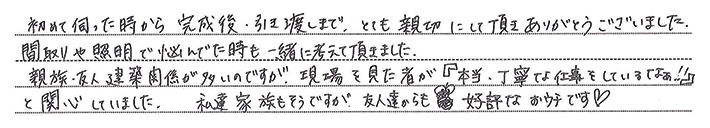 初めて伺った時から 完成後・引き渡しまで、とても 親切 にして頂き ありがとうございました.
間取りや照明で悩んでた時も一緒に考えて頂きました.
親族・友人 建築関係が多いのですが、現場を見た者が『本当、丁寧な仕事をしているなぁ!!』
と関心していました. 私達家族もそうですが、友人達からも 好評なおウチです♡